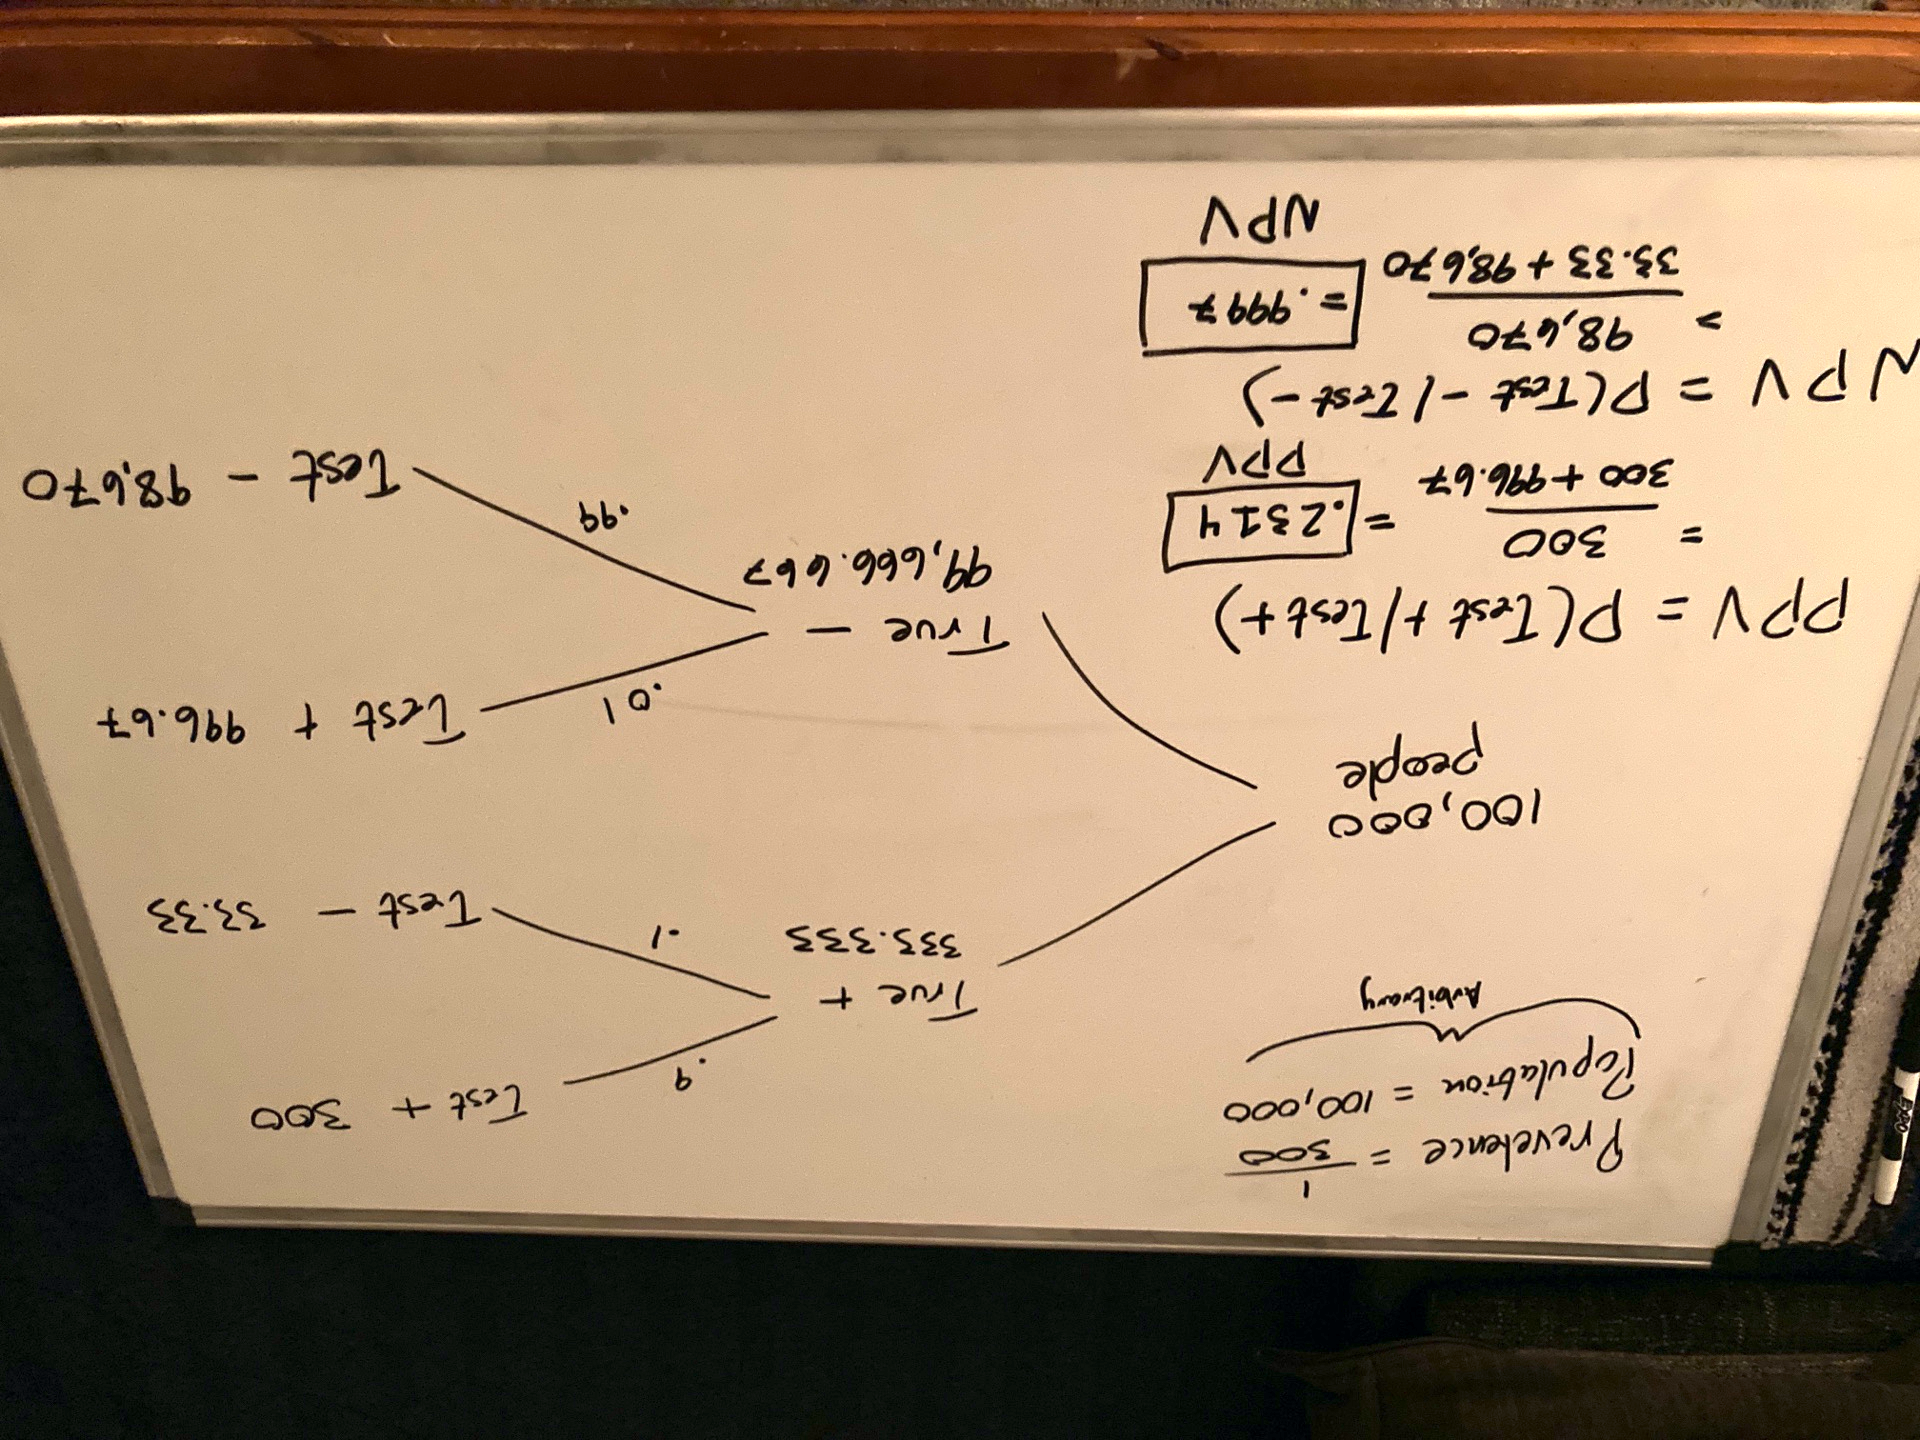 Prevelence = 1/300
Population = 100,000
Arbitrary
100,000
people
True +
333.333
.9
Test + 300
.1
Test - 33.33
True -
99,666.667
.01
Test + 996.67
.99
Test - 98,670
PPV = P(Test+/Test+)
= 300/300+996.67 = .2314
PPV
NPV = P(Test-/Test-)
= 98,670/33.33+98,670 = .9997
NPV
EXPO